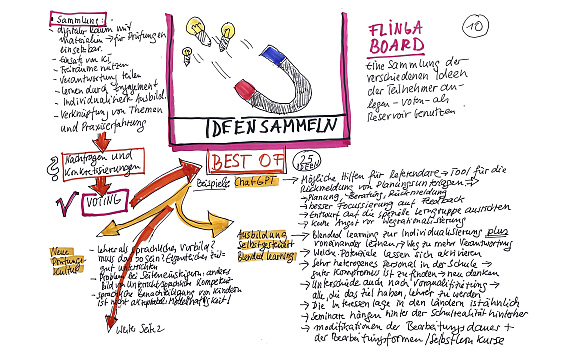 Sammlung:
- digitaler Raum mit
materialien → für Prüfungen
einsetzbar.
- Einsatz von KI
- Freiräume nutzen
- Verantwortung teilen
- Lernen durch Engagement
- Individualisierk. Ausbild.
- Verknüpfung von Themen
und Praxiserfahrung
IDEEN SAMMELN
FLINGA
BOARD
10
eine Sammlung der
verschiedenen Ideen
der Teilnehmer an-
legen - voten - als
Reservoir benutzen
Nachfragen und
Konkretisierungen
VOTING
BEST OF
25
IDEEN
Beispiele ChatGPT
→ Mögliche Hilfen für Referendare → Tool für die
Rückmeldung von Planungsunterlagen →
→ Planung, Beratung, Rückmeldung
→ besser Focussierung auf Feedback
→ Entwurf auf die spezielle Lerngruppe ausrichten
→ Keine Angst vor
Ausbildung
Selbstgesteuert
Blended learning
→ Blended learning zur Individualisierung plus
voneinander lernen → Was zu mehr Verantwortung
→ Welche Potentiale lassen sich aktivieren
→ Sehr heterogenes Personal in der Schule →
guter Kompromiss ist zu finden → neu denken
→ Unterschiede auch nach Vorqualifizierung →
alle, die das Ziel haben, Lehrer zu werden
→ Die Interessenlage in den Ländern ist ähnlich
→ Seminare hängen hinter der Schulrealität hinterher
→ modifikationen der Bearbeitungsdauer +
der Bearbeitungsformen / Selbstlernkurse
Neue
Prüfungs-
kultur
- Lehrer als sprachliches Vorbild?
muss das so sein?
gut unterrichten
- Problem bei Seiteneinsteigern: anderes
Bild von Unterricht, sprachliche Kompetenz
- sprachliche Benachteiligung von Kindern
ist nicht akzeptabel